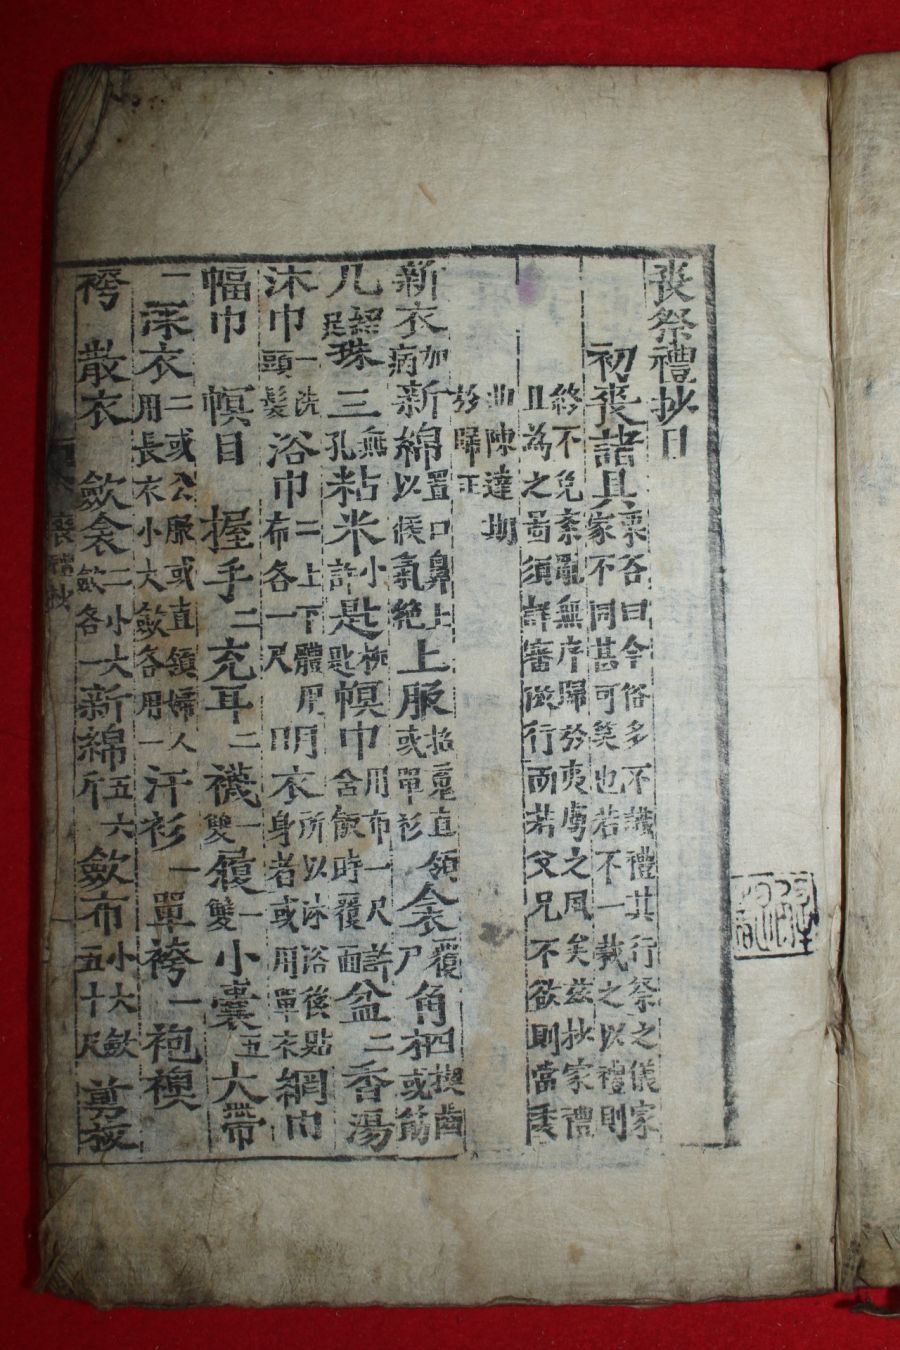 喪祭禮抄目
初喪諸具 栗谷曰今俗多不識禮其行祭之儀家
家不同甚可笑也若不一裁之以禮則
終不免紊亂無序歸於夷虜之風矣玆抄家禮
且為之圖須詳審倣行而若父兄不欲則當委
曲陳達期
於歸正
新衣 加病 新綿 置口鼻上以候氣絶 上服 或單衫直領 衾 覆尸 角柶 楔齒或筯
几 綴足 珠三 無孔 粘米 小許 匙 柳匙 幎巾 用布一尺許含飯時覆面 盆二 香湯
沐巾 一洗頭髮 浴巾 二上下體用布各一尺 明衣 所以沐浴後點身者或用單衣 網巾
幅巾 幎目 握手二 充耳二 襪 一雙 履 一雙 小囊五 大帶
一 深衣 二或公服或直領婦人用長衣小大斂各用一 汗衫一 單袴一 袍襖
袴 散衣 斂衾 二小大斂各一 新綿 五六斤 斂布 小大斂五十尺 剪板
喪禮抄